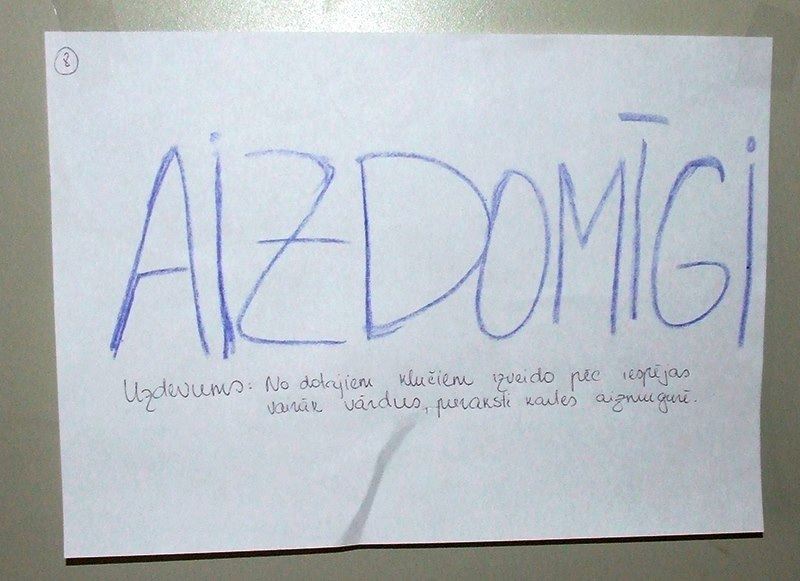 8
AIZDOMĪGI
Uzdevums: No dotajiem klučiem izveido pēc iespējas
vairāk vārdus, pieraksti kartes aizmugurē.